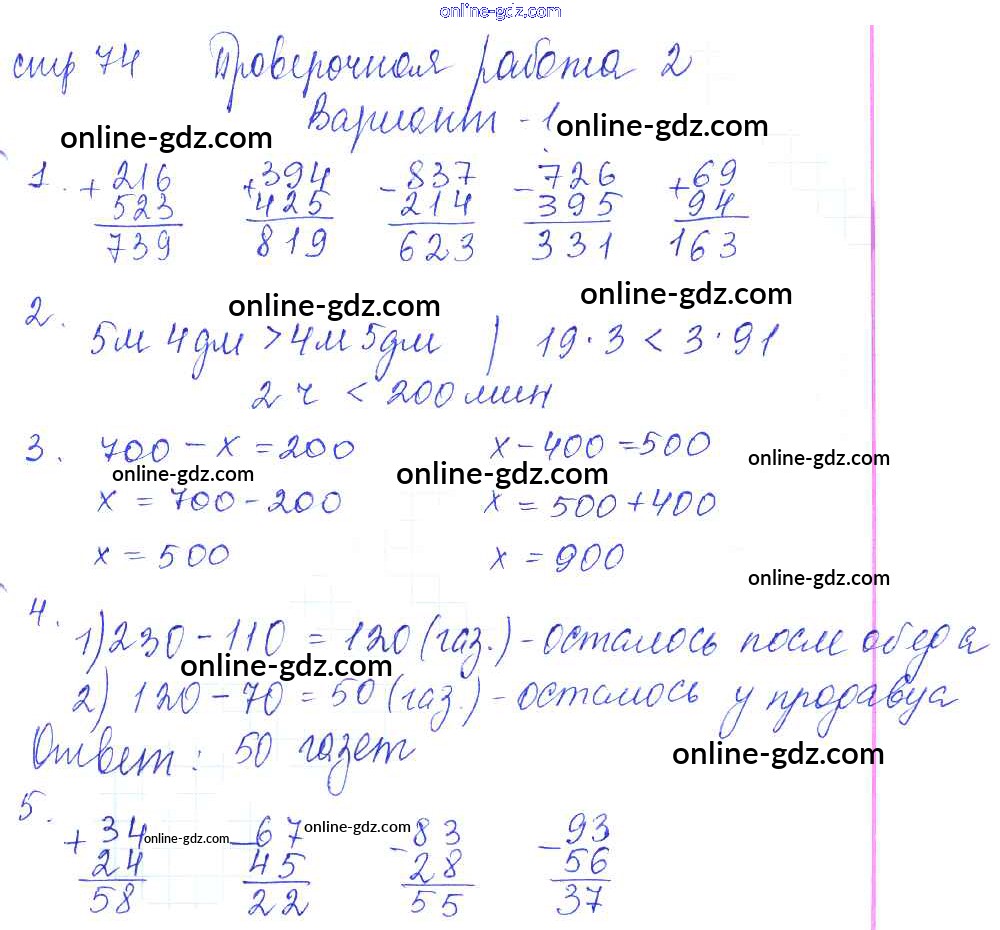 online-gdz.com
стр 74 Проверочная работа 2
Вариант - 1
online-gdz.com online-gdz.com
1. + 216 + 394 - 837 - 726 + 69
523 425 214 395 94
739 819 623 331 163
online-gdz.com online-gdz.com
2. 5м 4дм > 4м 5дм | 19 · 3 < 3 · 91
2 ч < 200 мин
3. 700 - x = 200 x - 400 = 500
online-gdz.com online-gdz.com online-gdz.com
x = 700 - 200 x = 500 + 400
x = 500 x = 900
online-gdz.com
4. 1) 230 - 110 = 120 (газ.) - осталось после обеда
online-gdz.com
2) 120 - 70 = 50 (газ.) - осталось у продавца
Ответ: 50 газет
online-gdz.com
5. + 34 - 67 - 83 - 93
online-gdz.com online-gdz.com
24 45 28 56
58 22 55 37